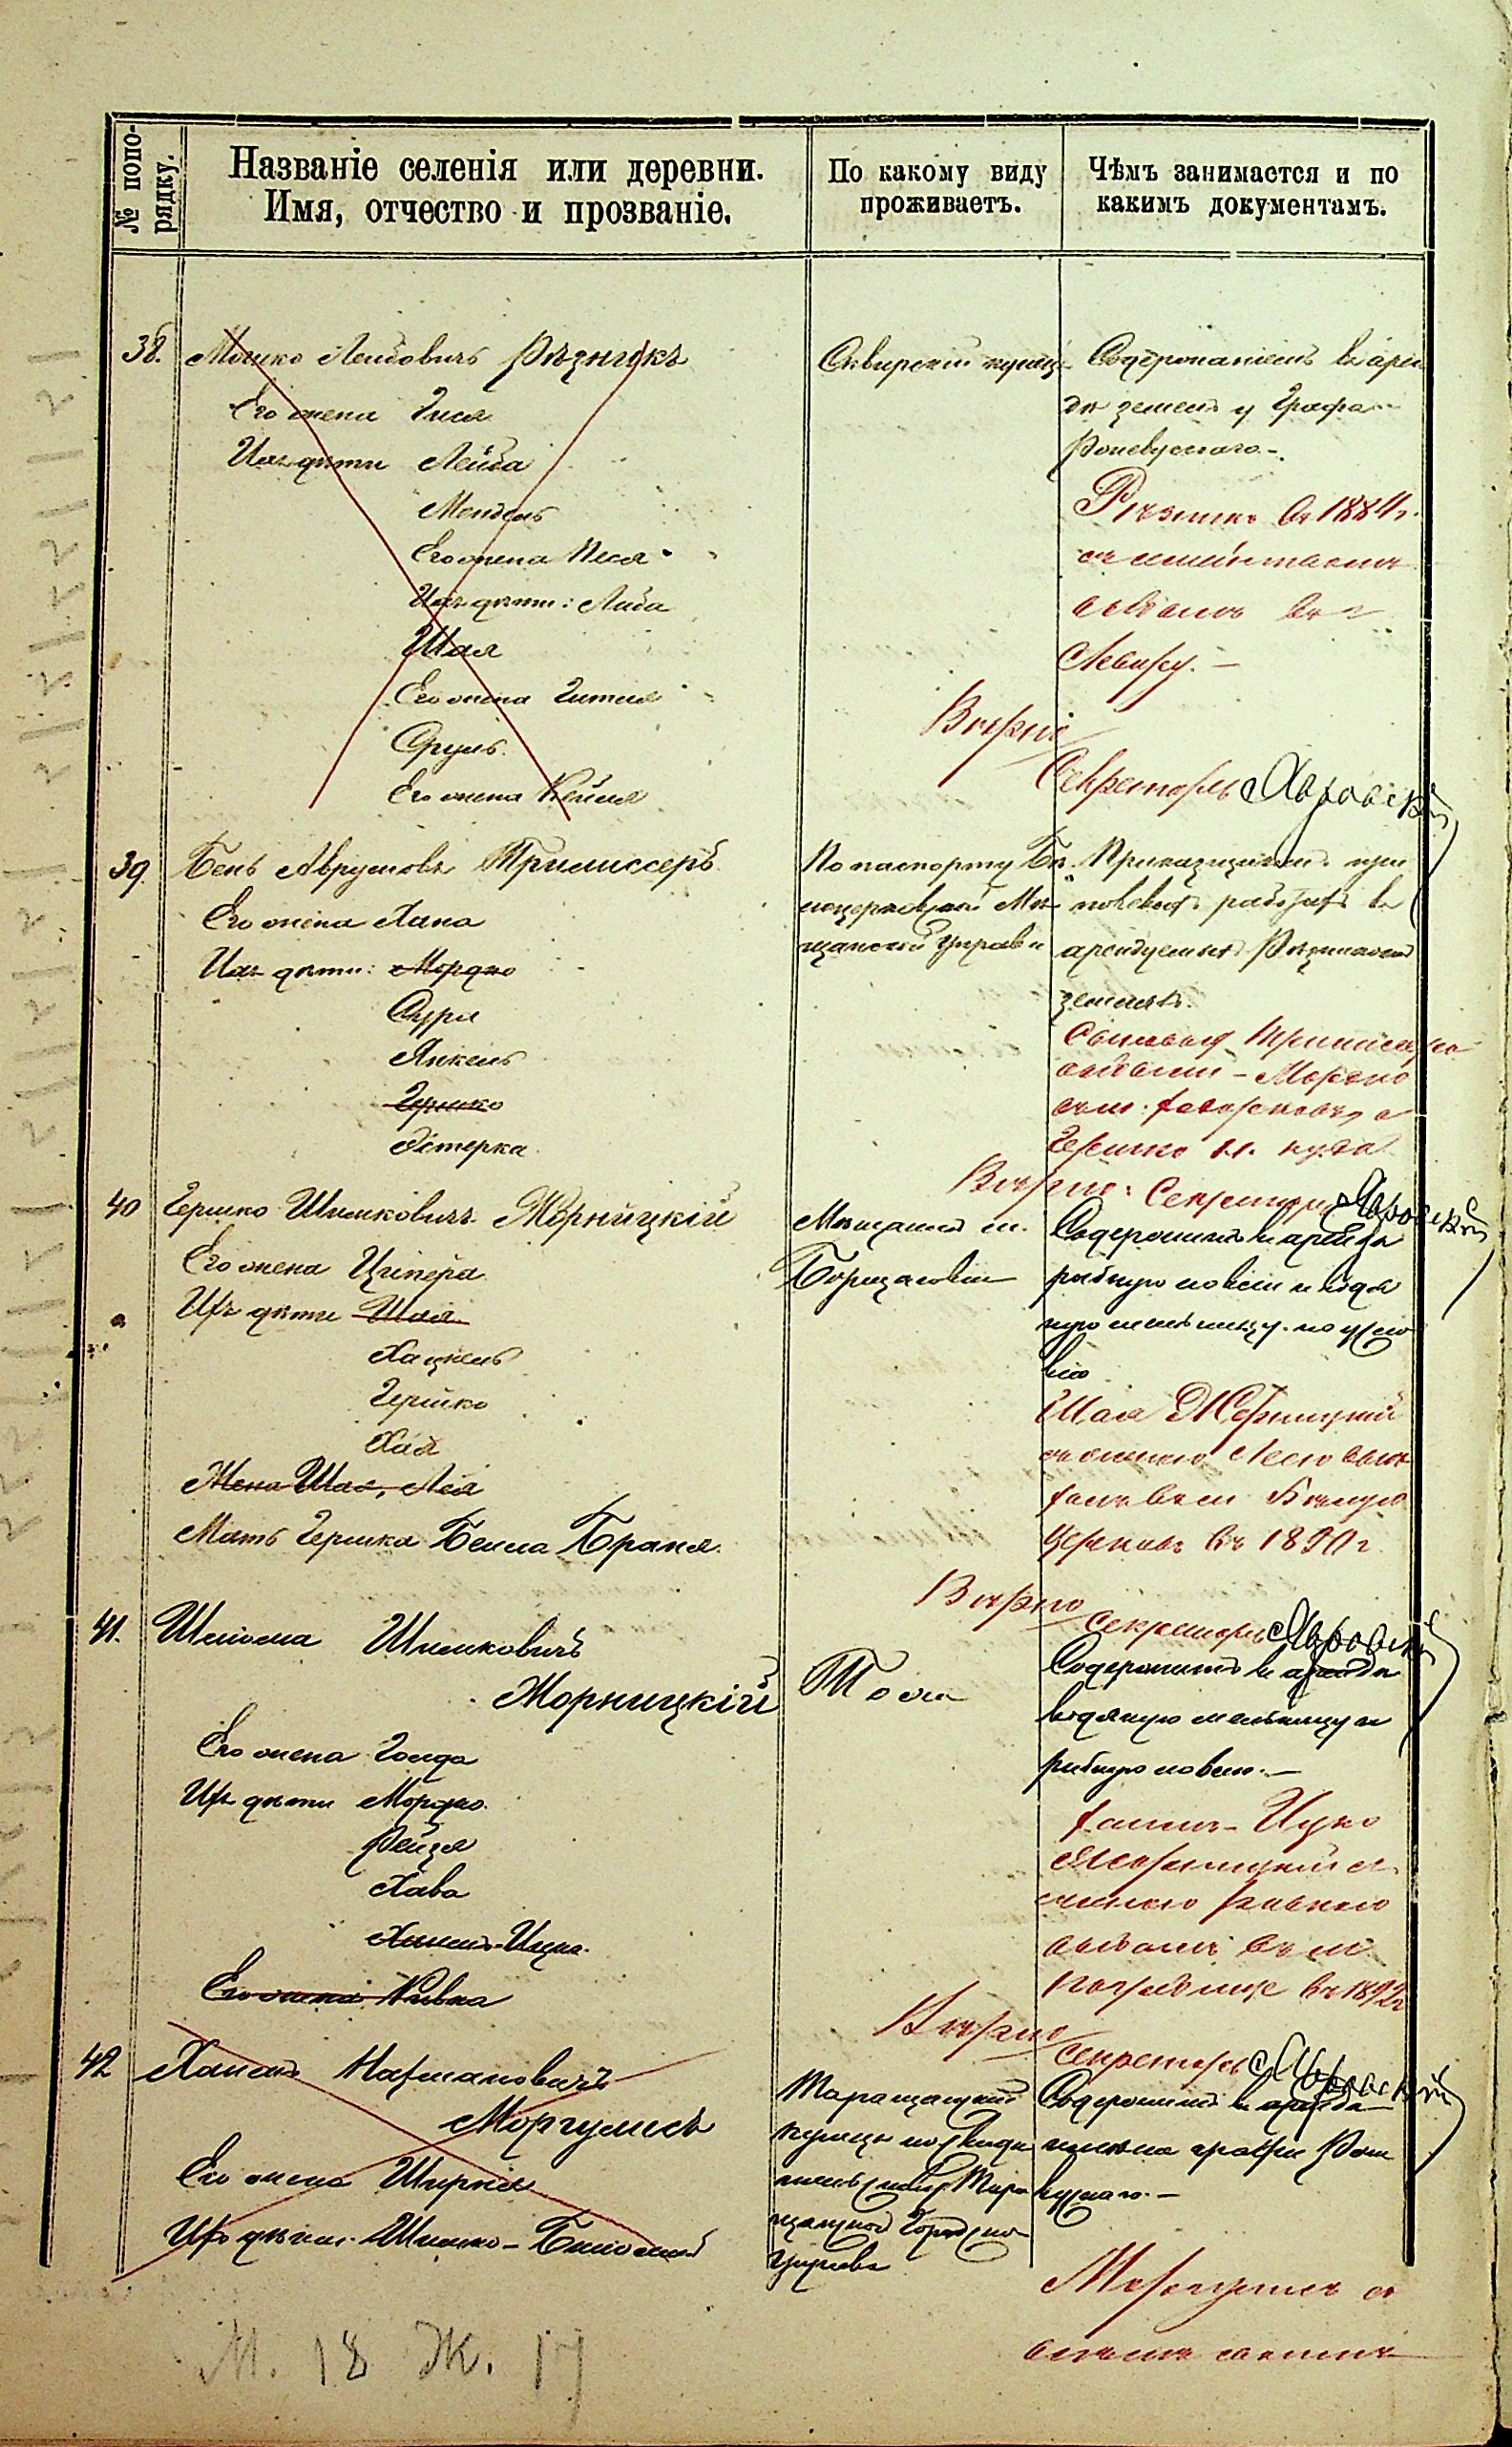 № попо-
рядку.
Названіе селенія или деревни.
Имя, отчество и прозваніе.
По какому виду
проживаетъ.
Чѣмъ занимается и по
какимъ документамъ.
38.
Мошко Лейбовичъ Рѣзникъ
Его жена Гися
Ихъ дѣти Лейба
Мендель
Его жена Песя
Ихъ дѣти: Либа
Шая
Его жена Гитля
Сруль
Его жена Кейля
Сквирскій купецъ
Содержаніемъ въ арен
дѣ земель у Графа
Ржевускаго. -
Рѣзникъ въ 1884 г.
съ семействомъ
выбылъ въ г
Сквиру. -
Вѣрно
Секретарь
39.
Бень Аврумовъ Тримиссеръ
Его жена Хана
Ихъ дѣти: Мордко
Сура
Янкель
Гершко
Эстерка
По паспорту Бѣ
лоцерковской Мѣ
щанской Управы
Прикащикомъ при
полевыхъ работахъ въ
арендуемыхъ Рѣзникомъ
земляхъ.
Сыновья Тримисера
выбыли - Мордко
Гершко н. куда
Вѣрно: Секретарь
40
Гершко Шимковичъ Жорницкій
Его жена Ципера
Ихъ дѣти Шая
Хацкель
Гершко
Хая
Жена Шаи, Лея
Мать Гершка Бейла Браня.
Мѣщанинъ м.
Борщаговки
Содержитъ въ арендѣ
рыбную ловлю и водя
ную мельницу по усло
вію
Шая Жорницкій
съ женою Леею выбы
Бѣлую
Церковь въ 1890 г
Вѣрно
Секретарь
41.
Шлиома Шимковичъ
Жорницкій
Его жена Голда
Ихъ дѣти Мордко.
Рейзя
Хава
Хаимъ-Ицко.
Его жена Ривка
Тоже
Содержитъ въ арендѣ
водяную мельницу и
рыбную ловлю. -
Хаимъ-Ицко
Жорницкій съ
женою Ривкою
выбылъ въ м.
Погребище въ 1892 г
Вѣрно
Секретарь
42
Хаимъ Нахмановичъ
Моргулисъ
Его жена Ширка
Ихъ дѣти: Шимко-Биньоминъ
Таращанскій
купецъ по свидѣ
тельству Тара
щанской Городской
Управы
Содержитъ въ арендѣ
имѣніе графа Рже
вускаго. -
Моргулисъ съ
М. 18 Ж. 17